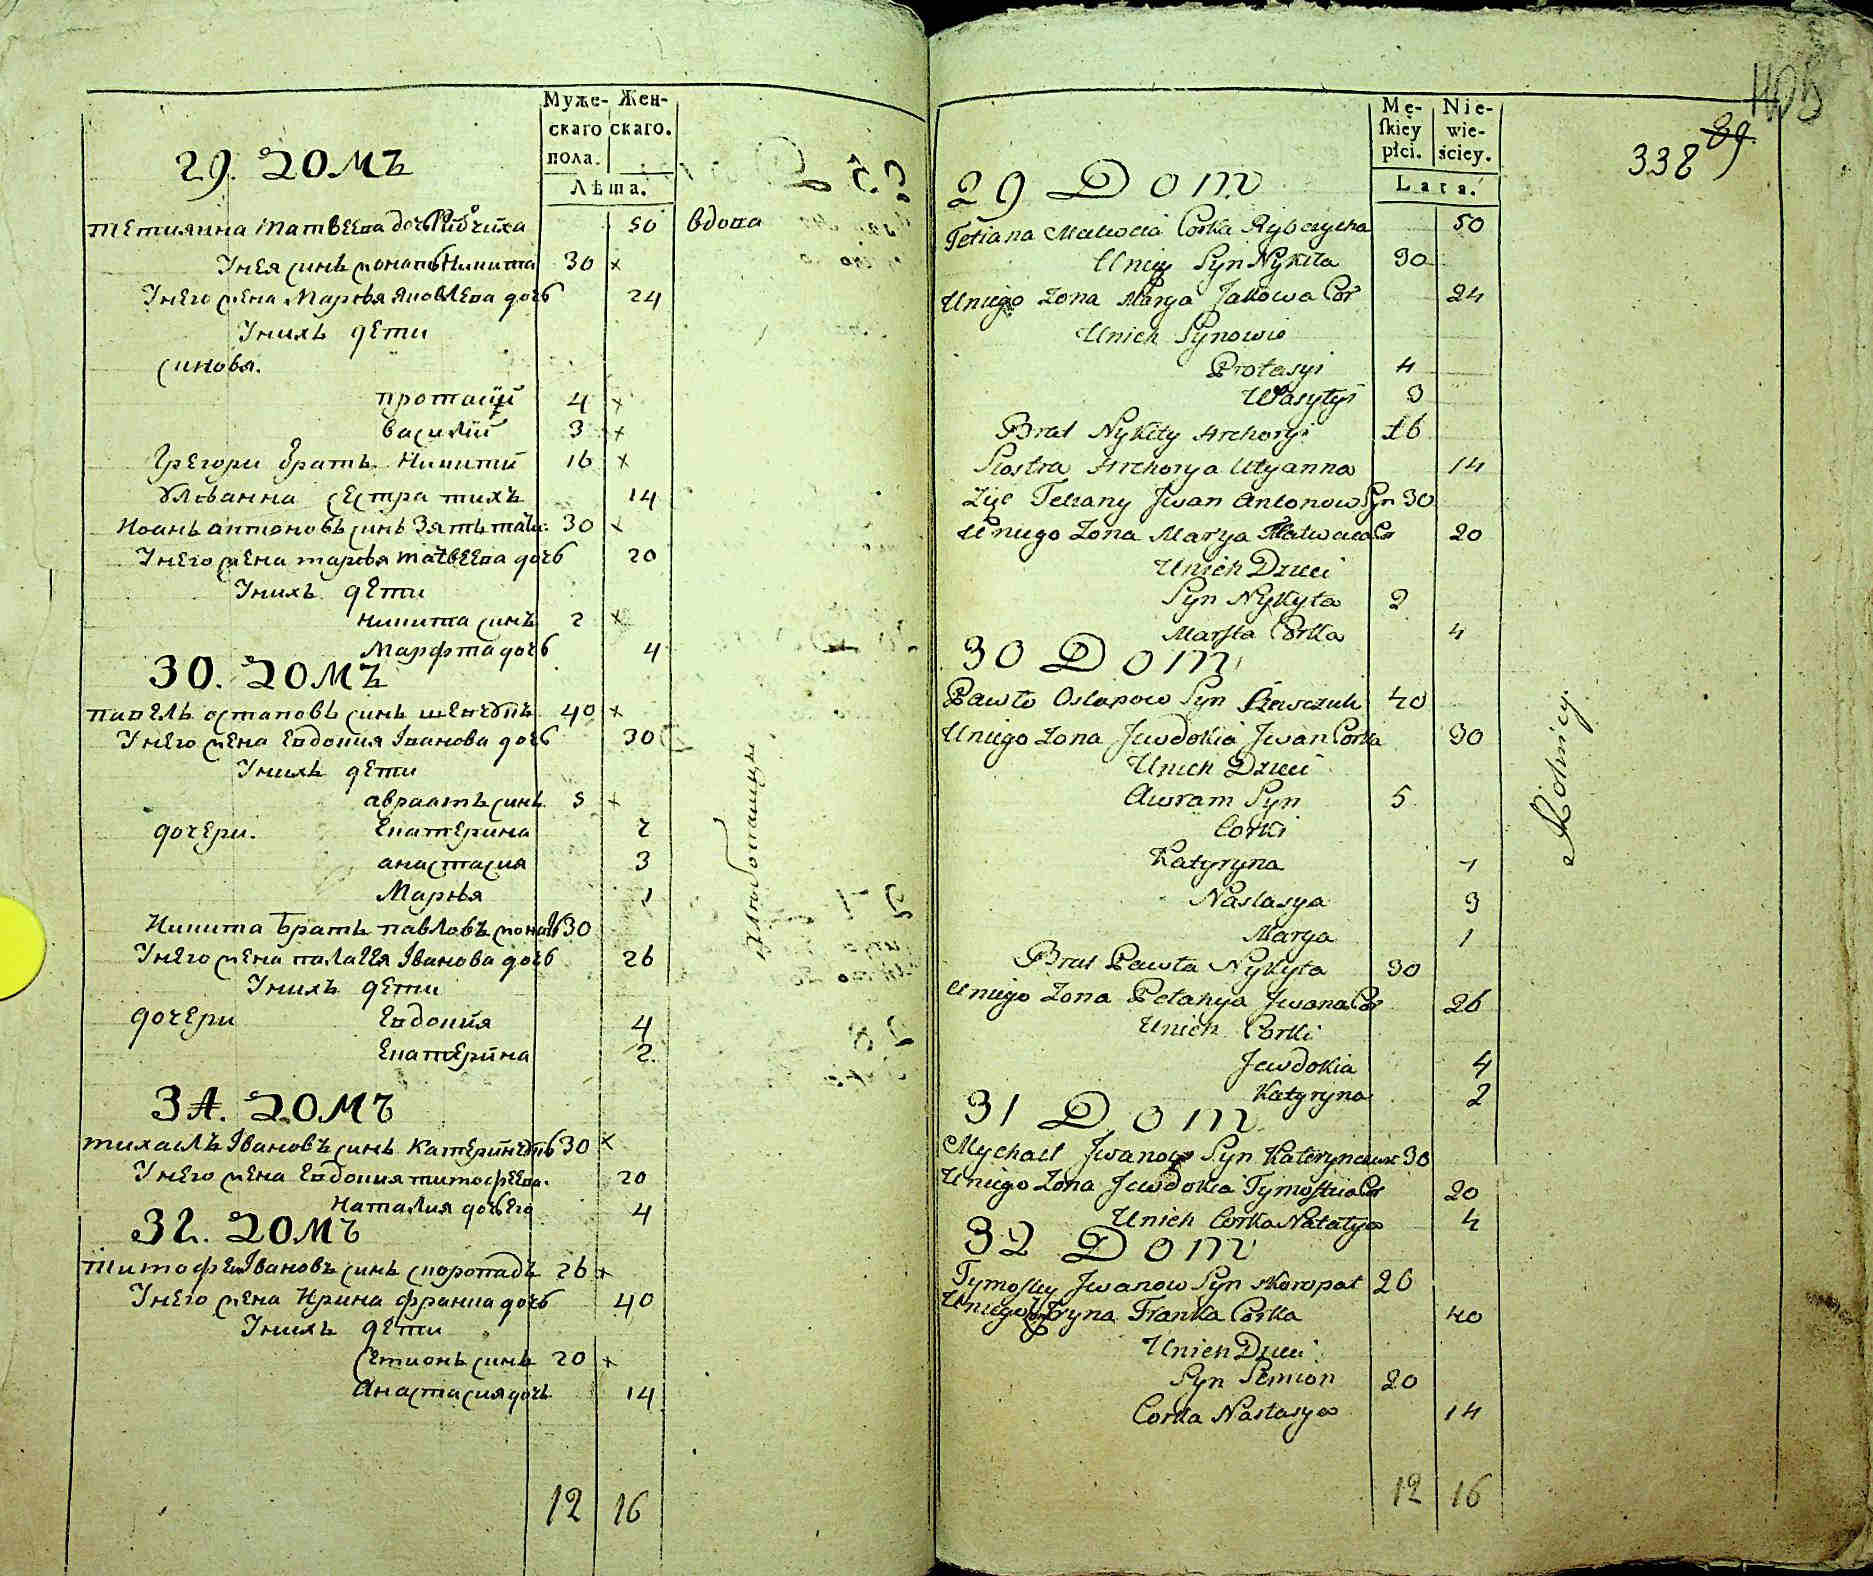 Муже- Жен-
скаго скаго.
пола.
Лѣта.
29. Домъ
Тетиянна Матвеева дочь Рибчиха 50 вдова
Унея синъ Никита 30 x
Унего жена Марья Яковлева дочь 24
Унихъ дети
Синовя.
Протасий 4 x
Василий 3 x
Григори братъ Никити 16 x
Улѣанна сестра тихъ 14
Иоанъ Антоновъ синъ зять 30 x
Унего жена Марья Матвеева дочь 20
Унихъ дети
Никита синъ 2 x
Марфта дочь 4
30. Домъ
Павель Остаповъ синъ Шевчукъ 40 x
Унего жена Евдокия Иванова дочь 30
Унихъ дети
Авраамъ синъ 5 x
дочери. Екатерина 7
Анастасия 3
Марья 1
Никита братъ Павловъ 30
Унего жена Палагея Иванова дочь 26
Унихъ дети
дочери Евдокия 4
Екатерина 2.
31. Домъ
Михаилъ Ивановъ синъ 30 x
Унего жена Евдокия Тимофеева. 20
Наталия дочь его 4
32. Домъ
Тимофей Ивановъ синъ Скоропадъ 26 x
Унего жена Ирина Франка дочь 40
Унихъ дети
Семионъ синъ 20 x
Анастасия дочь 14
12 16
Хлѣбопашцы
405
89
338
Mę- Nie-
skiey wie-
płci. sciey.
Lata.
29 Dom
Tetiana Matwieia Corka Rybczycha 50
Uniey Syn Nykita 30
Uniego Zona Marya Jakowa Cor 24
Unich Synowie
Protasyi 4
Wasylyi 3
Brat Nykity Hrehoryi 16
Siostra Hrehorya Ulyanna 14
Zięc Tetiany Jwan Antonow Syn 30
Uniego Zona Marya Matwiia Cor 20
Unich Dzieci
Syn Nykyta 2
Marfta Corka 4
30 Dom
Pawło Ostapow Syn Szewczuk 40
Uniego Zona Jewdokia Jwan Corka 30
Unich Dzieci
Awram Syn 5
Corki
Katyryna 7
Nastasya 3
Marya 1
Brat Pawła Nykyta 30
Uniego Zona Pelahya Jwana Cor 26
Unich Corki
Jewdokia 4
Katyryna 2
31 Dom
Mychaił Jwanow Syn 30
Uniego Zona Jewdokia Cor 20
Unich Corka Natalya 4
32 Dom
Tymofiey Jwanow Syn Skoropat 26
Uniego Iryna Franka Corka 40
Unich Dzieci
Syn Semion 20
Corka Nastasya 14
12 16
Rolnicy